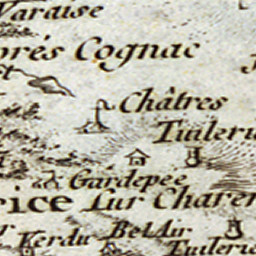 Varaise
prés Cognac
et
Châtres
Tuilerie
Gardepée
rice sur Charen
Verdu Bel Air
Tuilerie